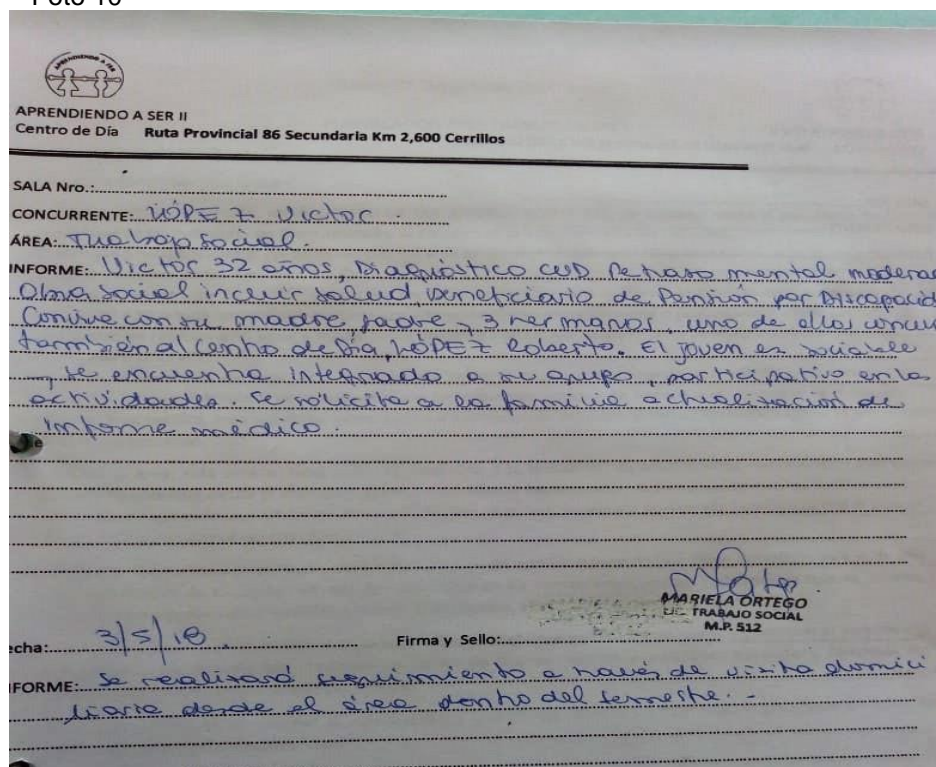 Foto 10
APRENDIENDO A SER
APRENDIENDO A SER II
Centro de Día Ruta Provincial 86 Secundaria Km 2,600 Cerrillos
SALA Nro.:
CONCURRENTE: LÓPEZ Victor.
ÁREA: Trabajo Social.
INFORME: Victor 32 años, Diagnóstico CUD Retraso mental moderad
Obra Social incluir salud, beneficiario de Pensión por Discapacid
Convive con su madre, padre, 3 hermanos, uno de ellos concur
también al Centro de Día, LÓPEZ Roberto. El joven es sociable
, se encuentra integrado a su grupo, participativo en las
actividades. Se solicita a la familia actualización de
informe médico.
MARIELA ORTEGO
LIC. TRABAJO SOCIAL
M.P. 512
echa: 3/5/18. Firma y Sello:
FORME: Se realizará seguimiento a través de visita domici
liaria desde el área dentro del semestre. -